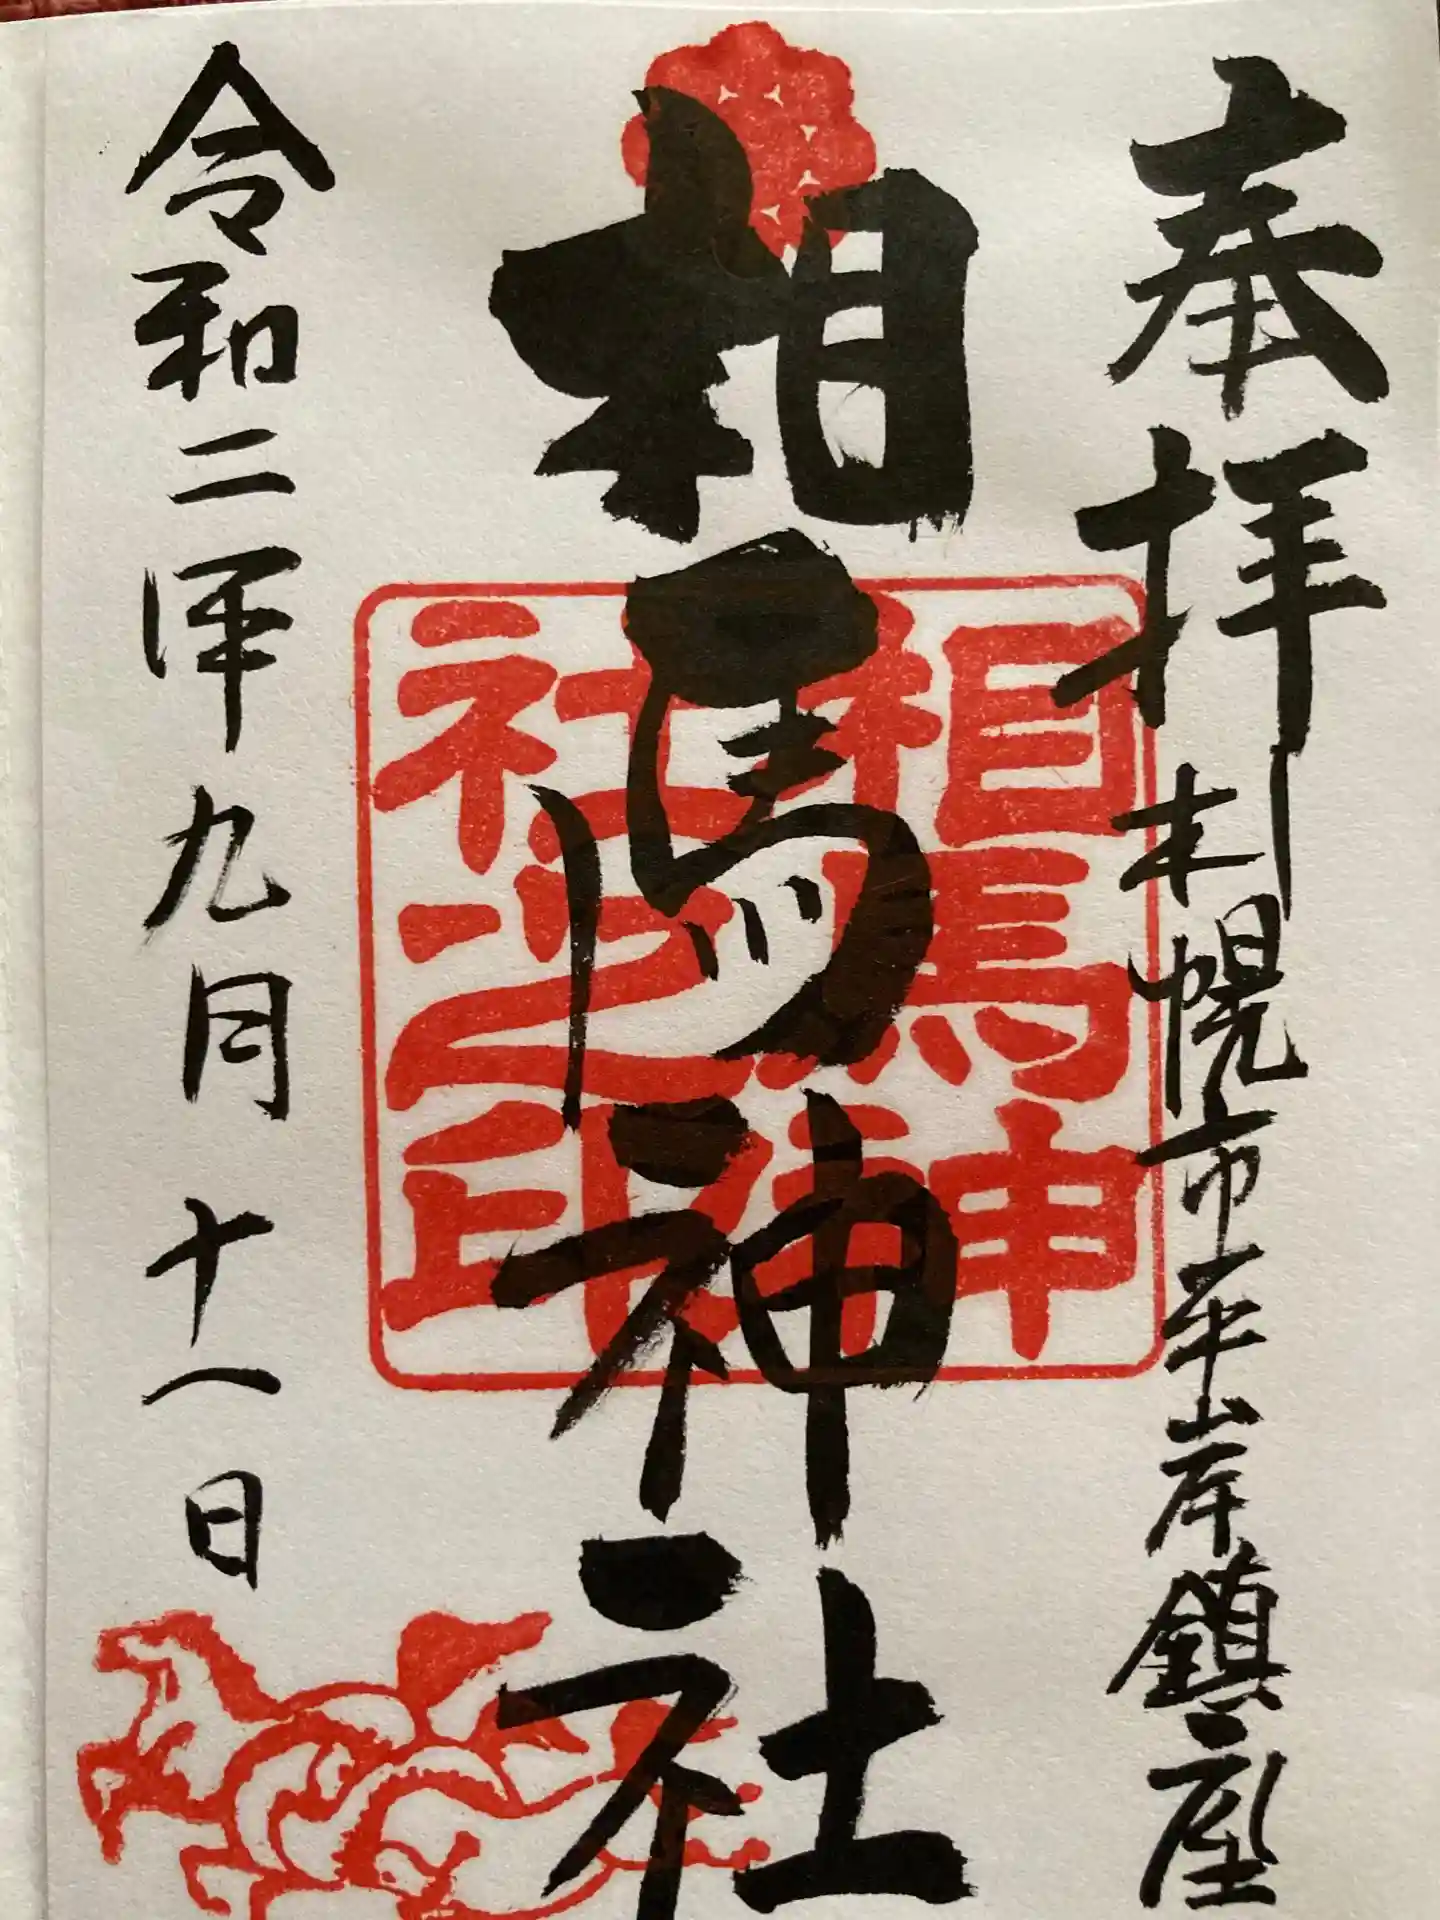 奉拝
札幌市平岸鎮座
相馬神社
相馬神
社之印
令和二年九月十一日